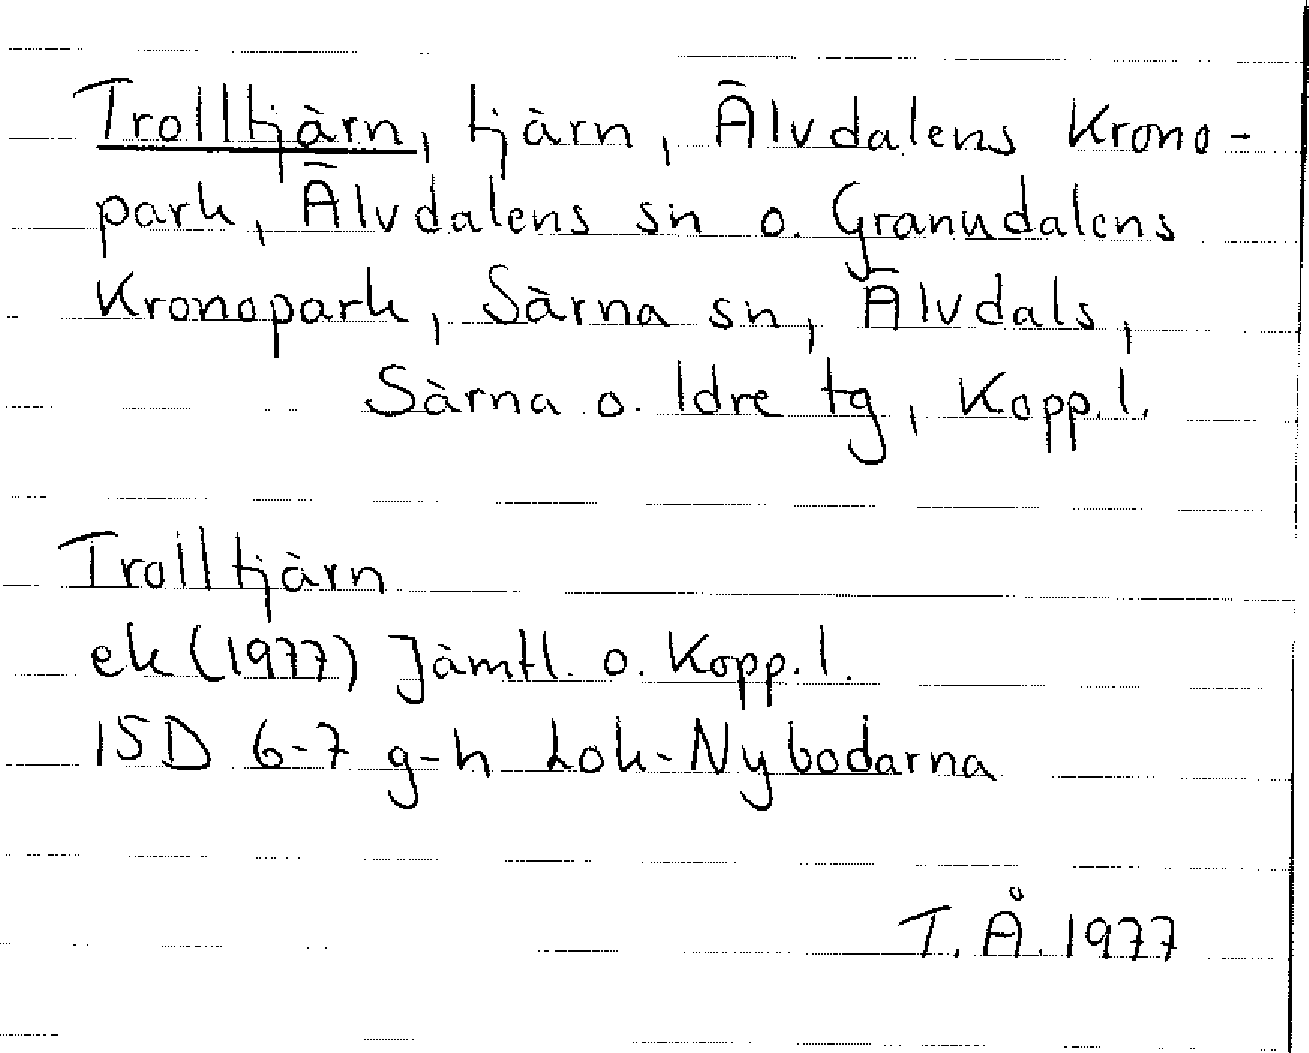 Trolltjärn, tjärn, Älvdalens Krono-
park, Älvdalens sn o. Granudalens
Kronopark, Särna sn, Älvdals,
Särna o. Idre tg, Kopp.l.
Trolltjärn
ek (1977) Jämtl. o. Kopp.l.
15D 6-7 g-h Lok-Nybodarna
T.Å. 1977